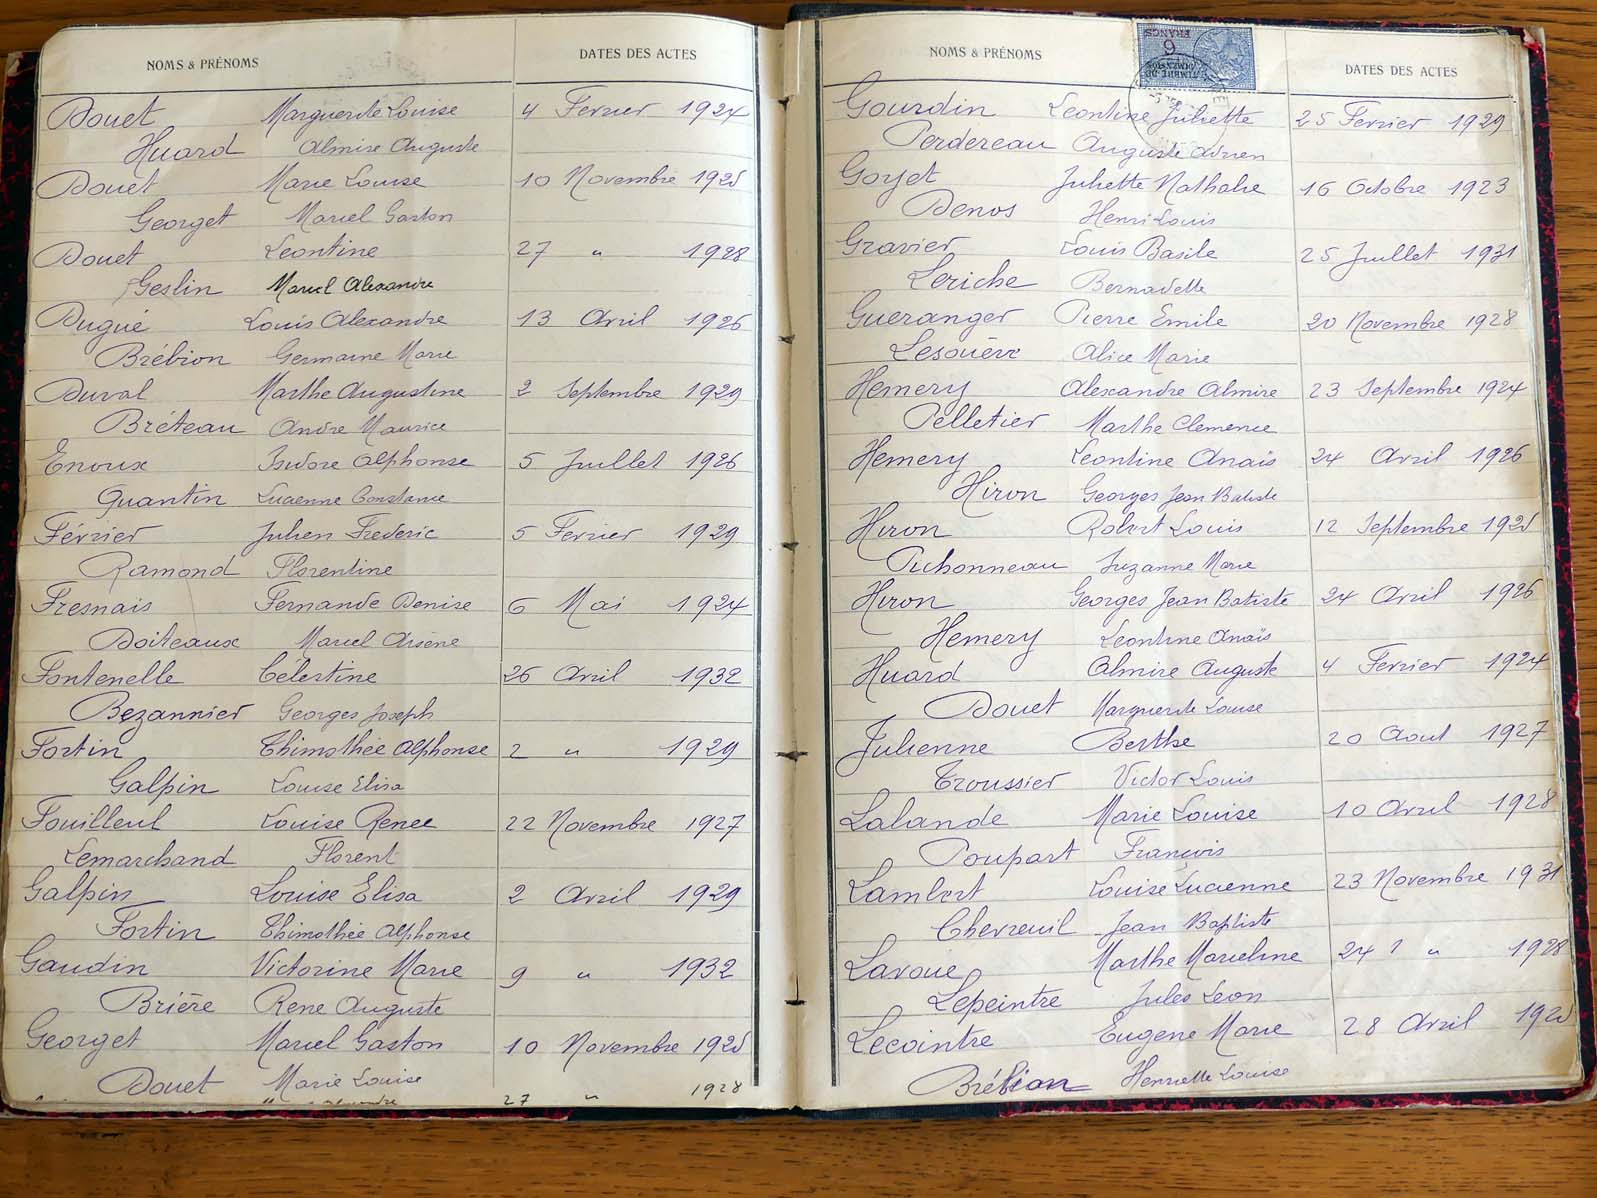 NOMS & PRÉNOMS DATES DES ACTES
Douet Marguerite Louise 4 Fevrier 1924
Huard Almire Auguste
Douet Marie Louise 10 Novembre 1925
Georget Marcel Gaston
Douet Leontine 27 " 1928
Geslin Marcel Alexandre
Dugué Louis Alexandre 13 Avril 1926
Brébion Germaine Marie
Duval Marthe Augustine 2 Septembre 1929
Bréteau Andre Maurice
Enoux Isidore Alphonse 5 Juillet 1926
Quantin Lucienne Constance
Février Julien Frederic 5 Fevrier 1929
Ramond Florentine
Fresnais Fernande Denise 6 Mai 1924
Doiteaux Marcel Arsène
Fontenelle Célestine 26 Avril 1932
Bezannier Georges Joseph
Fortin Thimothée Alphonse 2 " 1929
Galpin Louise Elisa
Fouilleul Louise Renee 22 Novembre 1927
Lemarchand Florent
Galpin Louise Elisa 2 Avril 1929
Fortin Thimothée Alphonse
Gaudin Victorine Marie 9 " 1932
Brière Rene Auguste
Georget Marcel Gaston 10 Novembre 1925
Douet Marie Louise
27 " 1928
NOMS & PRÉNOMS DATES DES ACTES
6 FRANCS
TIMBRE DE DIMENSION
Gourdin Leontine Juliette 25 Fevrier 1929
Perdereau Auguste Adrien
Goyet Juliette Nathalie 16 Octobre 1923
Denos Henri Louis
Gravier Louis Basile 25 Juillet 1931
Leriche Bernadette
Gueranger Pierre Emile 20 Novembre 1928
Lesouève Alice Marie
Hemery Alexandre Almire 23 Septembre 1924
Pelletier Marthe Clemence
Hemery Leontine Anaïs 24 Avril 1926
Hiron Georges Jean Batiste
Hiron Robert Louis 12 Septembre 1925
Pichonneau Suzanne Marie
Hiron Georges Jean Batiste 24 Avril 1926
Hemery Leontine Anaïs
Huard Almire Auguste 4 Fevrier 1924
Douet Marguerite Louise
Julienne Berthe 20 Aout 1927
Troussier Victor Louis
Lalande Marie Louise 10 Avril 1928
Poupart François
Lambert Louise Lucienne 23 Novembre 1931
Chevreuil Jean Baptiste
Lavoue Marthe Marceline 24 " 1928
Lepeintre Jules Leon
Lecointre Eugene Marie 28 Avril 1925
Brébion Henriette Louise